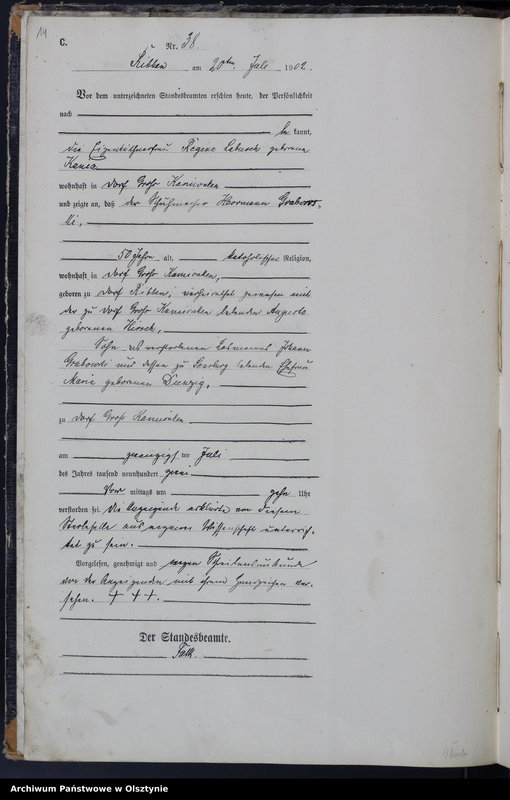 C.
Nr. 38.
Ribben am 20ten Juli 1902.
Vor dem unterzeichneten Standesbeamten erschien heute, der Persönlichkeit
nach
be kannt,
die Eigenkäthnerfrau Regine geborene
Kania
wohnhaft in Dorf Groß Kamionken
und zeigte an, daß der Schuhmacher Herrmann Grabows-
ki,
50 Jahre alt, katholischer Religion,
wohnhaft in Dorf Groß Kamionken,
geboren zu Dorf Ribben, verheirathet gewesen mit
der zu Dorf Groß Kamionken lebenden Auguste
geborenen
Sohn des verstorbenen Losmanns Johann
Grabowski und dessen zu Sensburg lebenden Ehefrau
Maria geborenen Danzig,
zu Dorf Groß Kamionken
am zwanzigsten Juli
des Jahres tausend neunhundert zwei
Vor mittags um zehn Uhr
verstorben sei. Die Anzeigende erklärte von diesem
Sterbefalle aus eigener Wissenschaft unterrich-
tet zu sein.
Vorgelesen, genehmigt und wegen Schreibensunkunde
von der Anzeigenden mit ihrem Handzeichen ver-
sehen. + + +.
Der Standesbeamte.
Falk.
Archiwum Państwowe w Olsztynie